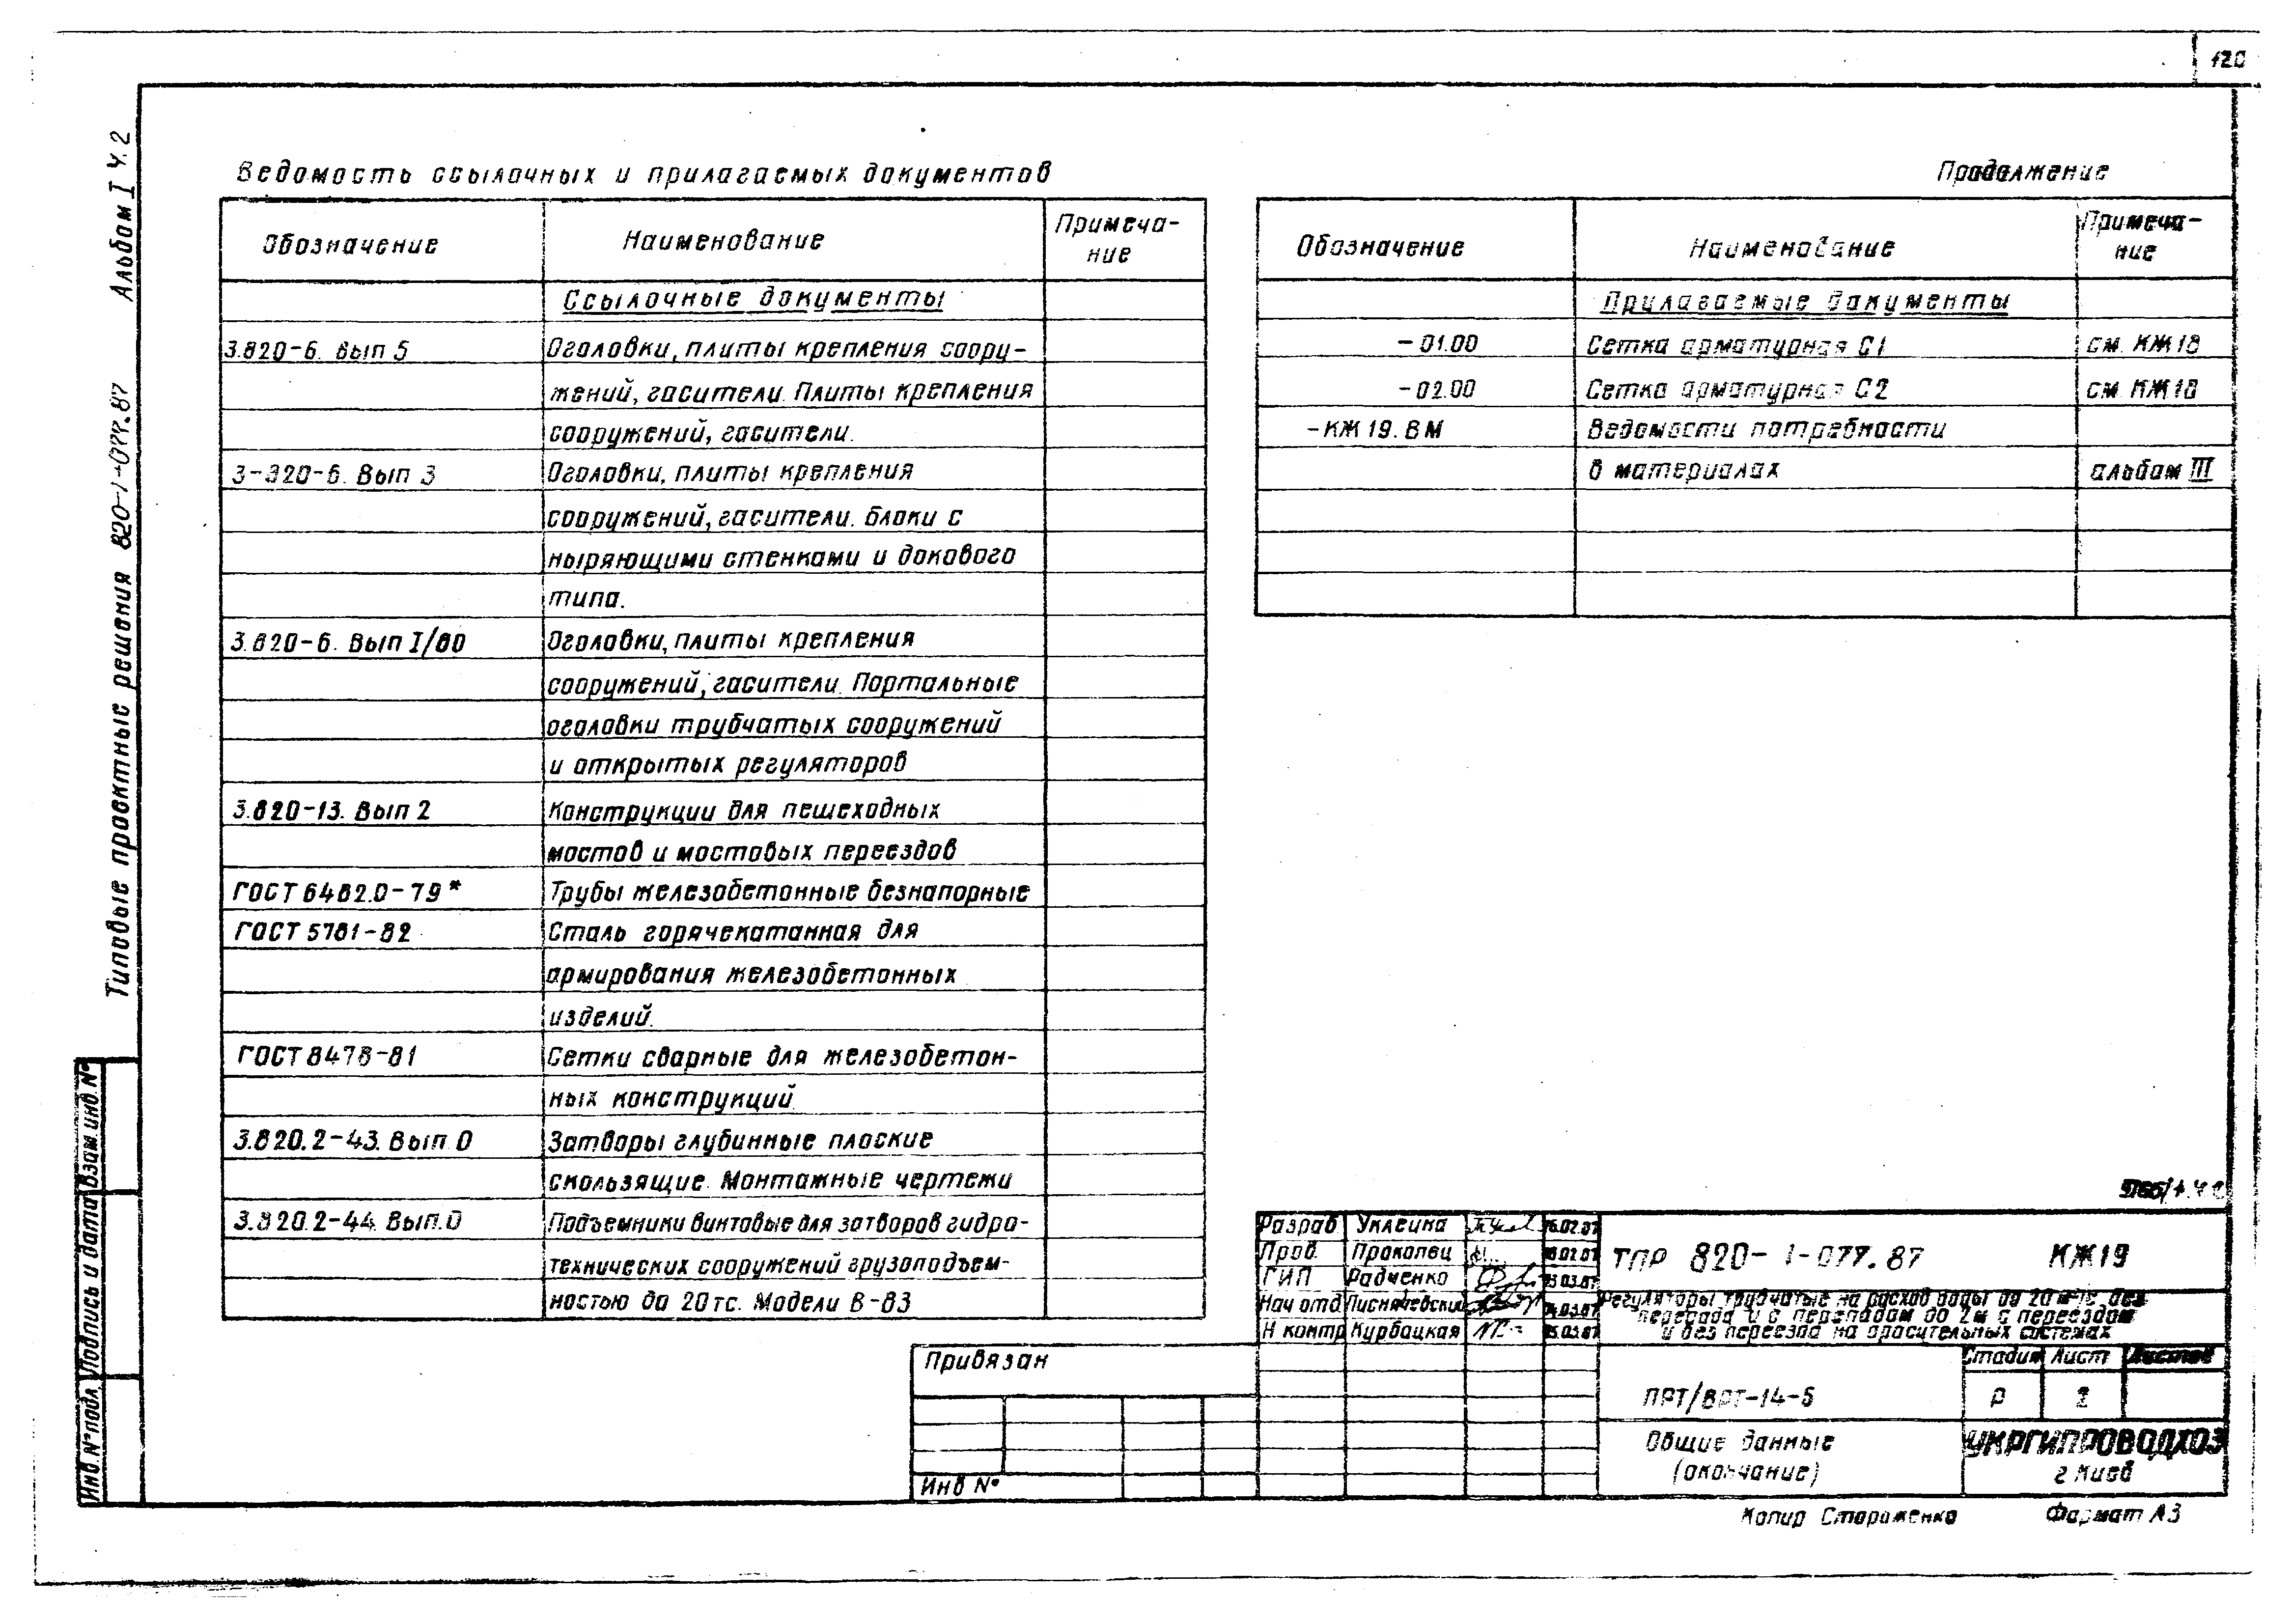 120
Альбом I Ч.2
Типовые проектные решения 820-1-077.87
Ведомость ссылочных и прилагаемых документов
Обозначение Наименование Примеча-
ние
Ссылочные документы
3.820-6. Вып 5 Оголовки, плиты крепления соору-
жений, гасители. Плиты крепления
сооружений, гасители.
3-820-6. Вып 3 Оголовки, плиты крепления
сооружений, гасители. Блоки с
ныряющими стенками и докового
типа.
3.820-6. Вып I/80 Оголовки, плиты крепления
сооружений, гасители. Портальные
оголовки трубчатых сооружений
и открытых регуляторов
3.820-13. Вып 2 Конструкции для пешеходных
мостов и мостовых переездов
ГОСТ 6482.0-79* Трубы железобетонные безнапорные
ГОСТ 5781-82 Сталь горячекатанная для
армирования железобетонных
изделий.
ГОСТ 8478-81 Сетки сварные для железобетон-
ных конструкций
3.820.2-43. Вып. 0 Затворы глубинные плоские
скользящие. Монтажные чертежи
3.820.2-44. Вып. 0 Подъемники винтовые для затворов гидро-
технических сооружений грузоподъем-
ностью до 20тс. Модели В-83
Продолжение
Обозначение Наименование Примеча-
ние
Прилагаемые документы
-01.00 Сетка арматурная С1 см. КЖ18
-02.00 Сетка арматурная С2 см. КЖ18
-КЖ19.ВМ Ведомости потребности
в материалах альбом III
Разраб Уклеина
Пров. Прокопец
ГИП Радченко
Нач отд
Н контр Курбацкая
ТПР 820-1-077.87 КЖ19
Регуляторы трубчатые на расход воды до 20 м³/с без
перепада и с перепадом до 2м с переездом
и без переезда на оросительных системах
Привязан
Инв №
Стадия Лист Листов
ПРТ/ВРТ-14-5 Р 2
Общие данные
(окончание)
УКРГИПРОВОДХОЗ
г Киев
Копир Стороженко Формат А3
Взам. инв. №
Подпись и дата
Инв. № подл.